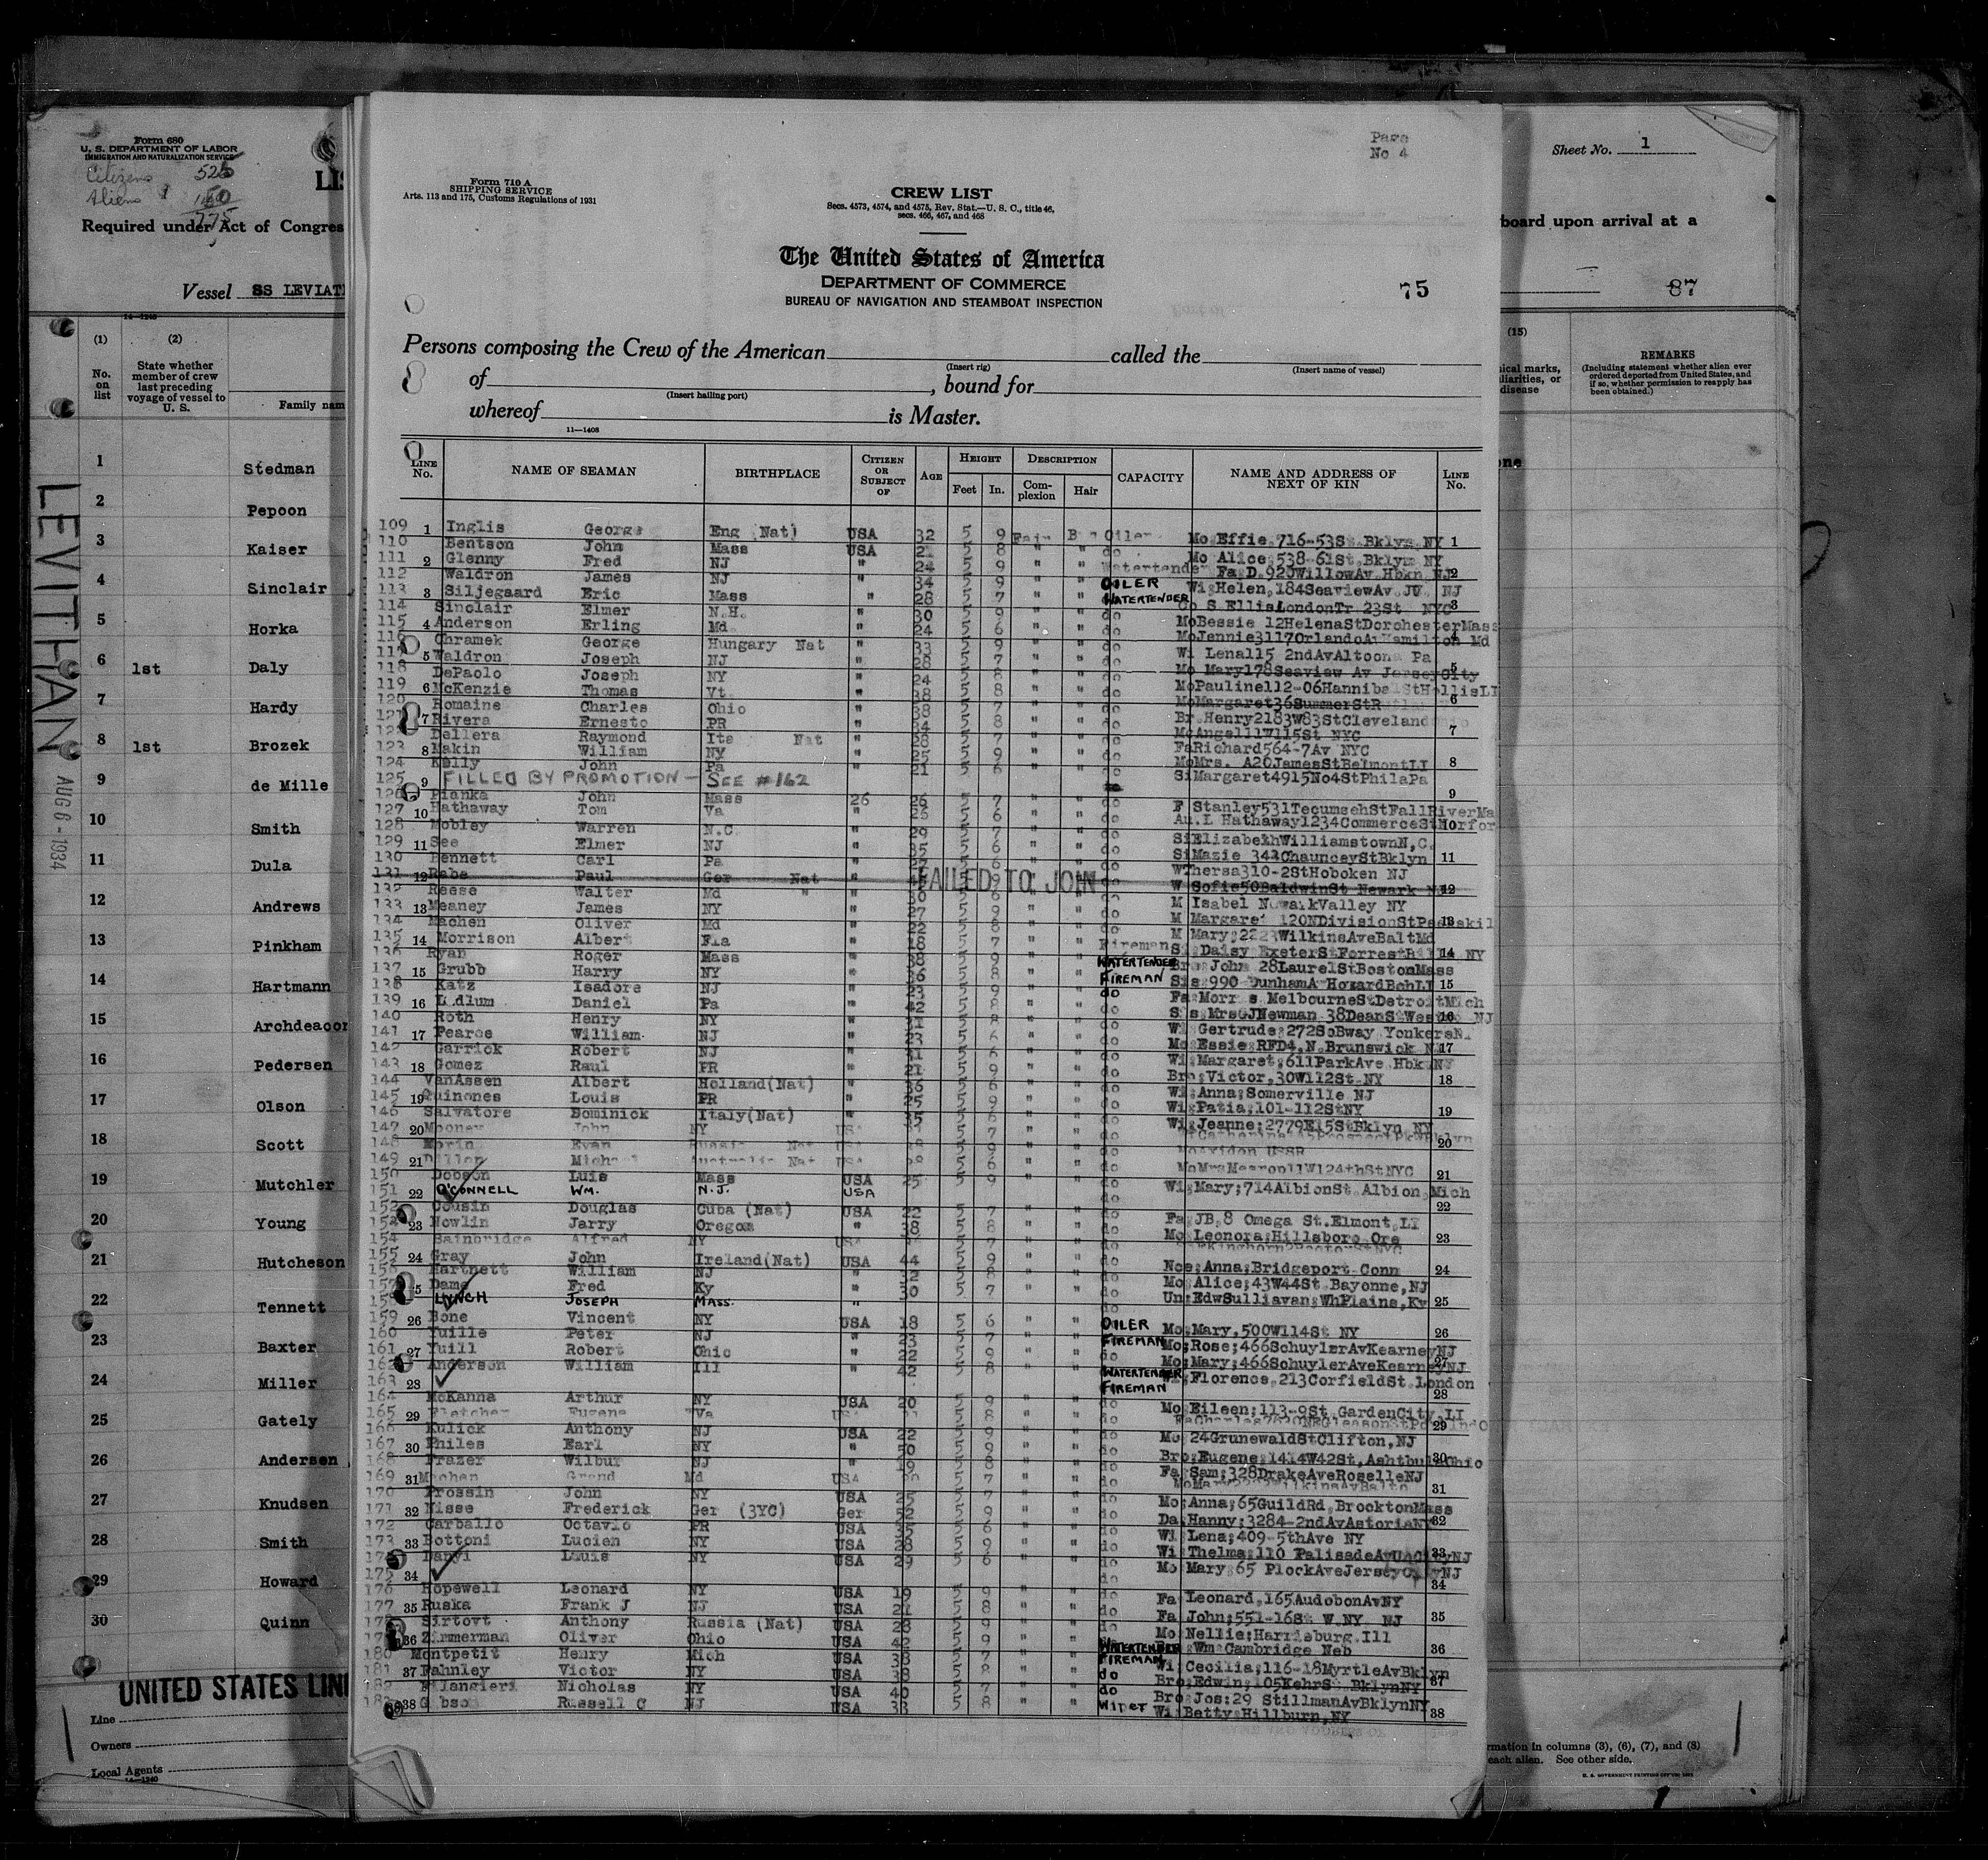 Form 680
U. S. DEPARTMENT OF LABOR
IMMIGRATION AND NATURALIZATION SERVICE
Citizens 525
Aliens
775
Required under Act of Congres
Vessel SS LEVIAT
(1) (2)
No. on list
State whether member of crew last preceding voyage of vessel to U. S.
Family nam
1 Stedman
2 Pepoon
3 Kaiser
4 Sinclair
5 Horka
6 1st Daly
7 Hardy
8 1st Brozek
9 de Mille
10 Smith
11 Dula
12 Andrews
13 Pinkham
14 Hartmann
15 Archdeacon
16 Pedersen
17 Olson
18 Scott
19 Mutchler
20 Young
21 Hutcheson
22 Tennett
23 Baxter
24 Miller
25 Gately
26 Andersen
27 Knudsen
28 Smith
29 Howard
30 Quinn
LEVITHAN
AUG 6 - 1934
UNITED STATES LIN
Line
Owners
Local Agents
14—1240
Page
No 4
Form 710 A
SHIPPING SERVICE
Arts. 113 and 175, Customs Regulations of 1931
CREW LIST
Secs. 4573, 4574, and 4575, Rev. Stat.—U. S. C., title 46,
secs. 466, 467, and 468
The United States of America
DEPARTMENT OF COMMERCE
BUREAU OF NAVIGATION AND STEAMBOAT INSPECTION
75
Persons composing the Crew of the American called the
(Insert rig) (Insert name of vessel)
of , bound for
(Insert hailing port)
whereof is Master.
11—1408
LINE No. NAME OF SEAMAN BIRTHPLACE CITIZEN OR SUBJECT OF AGE HEIGHT Feet In. DESCRIPTION Complexion Hair CAPACITY NAME AND ADDRESS OF NEXT OF KIN LINE No.
109 1 Inglis George Eng (Nat) USA 32 5 9 Fair Oiler Mo Effie 716-53St Bklyn NY 1
110 Bentson John Mass USA 5 8 " " do Mo Alice 538-61St Bklyn NY
111 2 Glenny Fred NJ " 24 5 9 " " Watertender Fa D. 920WillowAv Hbkn NJ 2
112 Waldron James NJ " 34 5 9 " " OILER Wi Helen, 184SeaviewAv NJ
113 3 Siljegaard Eric Mass " 28 5 7 " " WATERTENDER S EllisLondonTr 23St NYC 3
114 Sinclair Elmer N.H. 30 5 9 " " do MoBessie 12HelenaStDorchesterMass
115 4 Anderson Erling Md " 24 5 6 " " do MoJennie3117OrlandoAvHamilton Md 4
116 Chramek George Hungary Nat " 33 5 9 " " do Wi Lena115 2ndAvAltoona Pa
117 5 Waldron Joseph NJ " 28 5 7 " " do Mo Mary178Seaview Av JerseyCity 5
118 DePaolo Joseph NY " 24 5 8 " " do MoPauline112-06HannibalStHollisLI
119 6 McKenzie Thomas Vt " 38 5 8 " " do MoMargaret36SummerSt 6
120 Romaine Charles Ohio " 38 5 7 " " do Br Henry2183W83StCleveland
121 7 Rivera Ernesto PR " 34 5 8 " " do St NYC 7
122 Dellera Raymond Ita Nat " 28 5 7 " " do FaRichard564-7Av NYC
123 8 Makin William NY " 25 5 9 " " do MoMrs. A20JamesStBelmontLI 8
124 Kelly John Pa " 21 5 6 " " do SiMargaret4915No4StPhilaPa
125 9 FILLED BY PROMOTION — SEE #162 9
126 Pianka John Mass 26 26 5 7 " " do F Stanley531TecumsehStFallRiverMa
127 10 Hathaway Tom Va " 5 6 " " do Au.L Hathaway1234CommerceStNorfor 10
128 Mobley Warren N.C. " 29 5 7 " " do SiElizabethWilliamstownN,C.
129 11 See Elmer NJ " 35 5 6 " " do SiMazie 342ChaunceyStBklyn 11
130 Bennett Carl Pa " 5 6 " " do WThersa310-2StHoboken NJ
131 12 Rabe Paul Ger Nat " FAILED TO JOIN do W Sofie50BaldwinSt Newark NJ 12
132 Reese Walter Md " " 30 5 6 " " do M Isabel Valley NY
133 13 Meaney James NY " 27 5 9 " " do M Margaret 120NDivisionStPeekskil 13
134 Machen Oliver Md " 22 5 8 " " do M Mary;2223WilkinsAveBaltMd
135 14 Morrison Albert Fla " 18 5 7 " " Fireman Si Daisy ExeterStForrestHills NY 14
136 Ryan Roger Mass " 38 5 9 " " WATERTENDER Br John 28LaurelStBostonMass
137 15 Grubb Harry NY " 36 5 8 " " FIREMAN Sis 990 DunhamAv HowardBchLI 15
138 Katz Isadore NJ " 23 5 9 " " do Fa Morris MelbourneStDetroitMich
139 16 Ludlum Daniel Pa " 42 5 8 " " do Sis MrsGJNewman 38DeanSt NJ 16
140 Roth Henry NY " 31 5 8 " " do Wi Gertrude;272SoBway Yonkers
141 17 Pearce William NJ " 23 5 6 " " do Mo Essie RFD4,N.Brunswick NJ 17
142 Garrick Robert NJ " 31 5 6 " " do Wi Margaret;611ParkAve Hbk NJ
143 18 Gomez Raul PR " 21 5 9 " " do Bro Victor,30W112St NY 18
144 VanAssen Albert Holland(Nat) " 36 5 6 " " do Wi Anna;Somerville NJ
145 19 Quinones Louis PR " 25 5 9 " " do Wi Patia;101-112StNY 19
146 Salvatore Dominick Italy(Nat) " 35 5 6 " " do Wi Jeanne;2779E15StBklyn NY
147 20 Mooney John NY USA 5 7 " " do 20
148 Morin Evan Russia Nat USA 5 9 " " do USSR
149 21 Dillon Michael Australia Nat USA 5 6 " " do 11W124thStNYC 21
150 Dobson Luis Mass USA 25 5 9 " " do Wi Mary;714AlbionSt Albion,Mich
151 22 O'CONNELL WM. N.J. USA do 22
152 Cousin Douglas Cuba (Nat) USA 22 5 7 " " do Fa JB,8 Omega St.Elmont,LI
23 Howlin Jarry Oregon " 38 5 8 " " do Mo Leonora;Hillsboro Ore 23
154 Bainbridge Alfred NY USA 5 7 " " do
155 24 Gray John Ireland(Nat) USA 44 5 9 " " do Nce;Anna;Bridgeport Conn 24
156 Hartnett William NJ " 32 5 8 " " do Mo Alice;43W44St Bayonne,NJ
157 Dame Fred Ky " 30 5 7 " " do Un;EdwSulliavan;WhPlains,Ky 25
LYNCH JOSEPH MASS. " do
159 26 Bone Vincent NY USA 18 5 6 " " OILER Mo;Mary,500W114St NY 26
160 Yuille Peter NJ " 23 5 7 " " FIREMAN Mo;Rose;466SchuylerAvKearneyNJ
161 27 Yuill Robert Ohio " 22 5 9 " " do Mo;Mary;466SchuylerAveKearneyNJ 27
162 Anderson William Ill " 42 5 8 " " WATERTENDER Wi;Florence,213CorfieldSt.London
163 28 FIREMAN 28
164 McKanna Arthur NY USA 20 5 9 " " do Mo Eileen;113-9St GardenCity,LI
165 29 Fletcher Eugene Va USA 5 8 " " do 29
166 Kulick Anthony NJ USA 22 5 9 " " do Mo 24GrunewaldStClifton,NJ
167 30 Philes Earl NY " 50 5 9 " " do Bro;Eugene;1414W42St,AshtbulaOhio 30
168 Frazer Wilbur NJ " 19 5 8 " " do Fa Sam;328DrakeAveRoselleNJ
169 31 Machen Grand Md USA 5 7 " " do 31
170 Prossin John NY USA 25 5 7 " " do Mo;Anna;65GuildRd,BrocktonMass
171 32 Nisse Frederick Ger (3YC) Ger 52 5 9 " " do Da Hanny;3284-2ndAvAstoriaNY 32
172 Carballo Octavio PR USA 35 5 6 " " do Wi Lena;409-5thAve NY
173 33 Bottoni Lucien NY USA 28 5 9 " " do Wi Thelma;110 PalisadeAvUnCityNJ 33
Danvi Louis NY USA 29 5 6 " " do Mo Mary;65 PlockAveJerseyCityNJ
175 34 do 34
176 Hopewell Leonard NY USA 19 5 9 " " do Fa Leonard,165AudobonAvNY
177 35 Ruska Frank J NJ USA 21 5 8 " " do Fa John;551-16St W.NY NJ 35
178 Sirtovt Anthony Russia (Nat) USA 28 5 9 " " do Mo Nellie;Harrisburg.Ill
36 Zimmerman Oliver Ohio USA 42 5 9 " " WATERTENDER Wm Cambridge Neb 36
180 Montpetit Henry Mich USA 38 5 7 " " FIREMAN Wi Cecilia;116-18MyrtleAvBklyn
181 37 Fahnley Victor NY USA 38 5 8 " " do Bro;Edwin;105KehrSt BklynNY 37
182 Filangieri Nicholas NY USA 40 5 7 " " do Bro Jos:29 StillmanAvBklynNY
38 Gibson Russell C NJ USA 38 5 8 " " Wiper Wi Betty Hillburn,NY 38
Sheet No. 1
board upon arrival at a
87
(15)
ical marks,
liarities, or
disease
REMARKS
(Including statement whether alien ever
ordered deported from United States, and
if so, whether permission to reapply has
been obtained.)
one
rmation in columns (3), (6), (7), and (8)
each alien. See other side.
U. S. GOVERNMENT PRINTING OFFICE